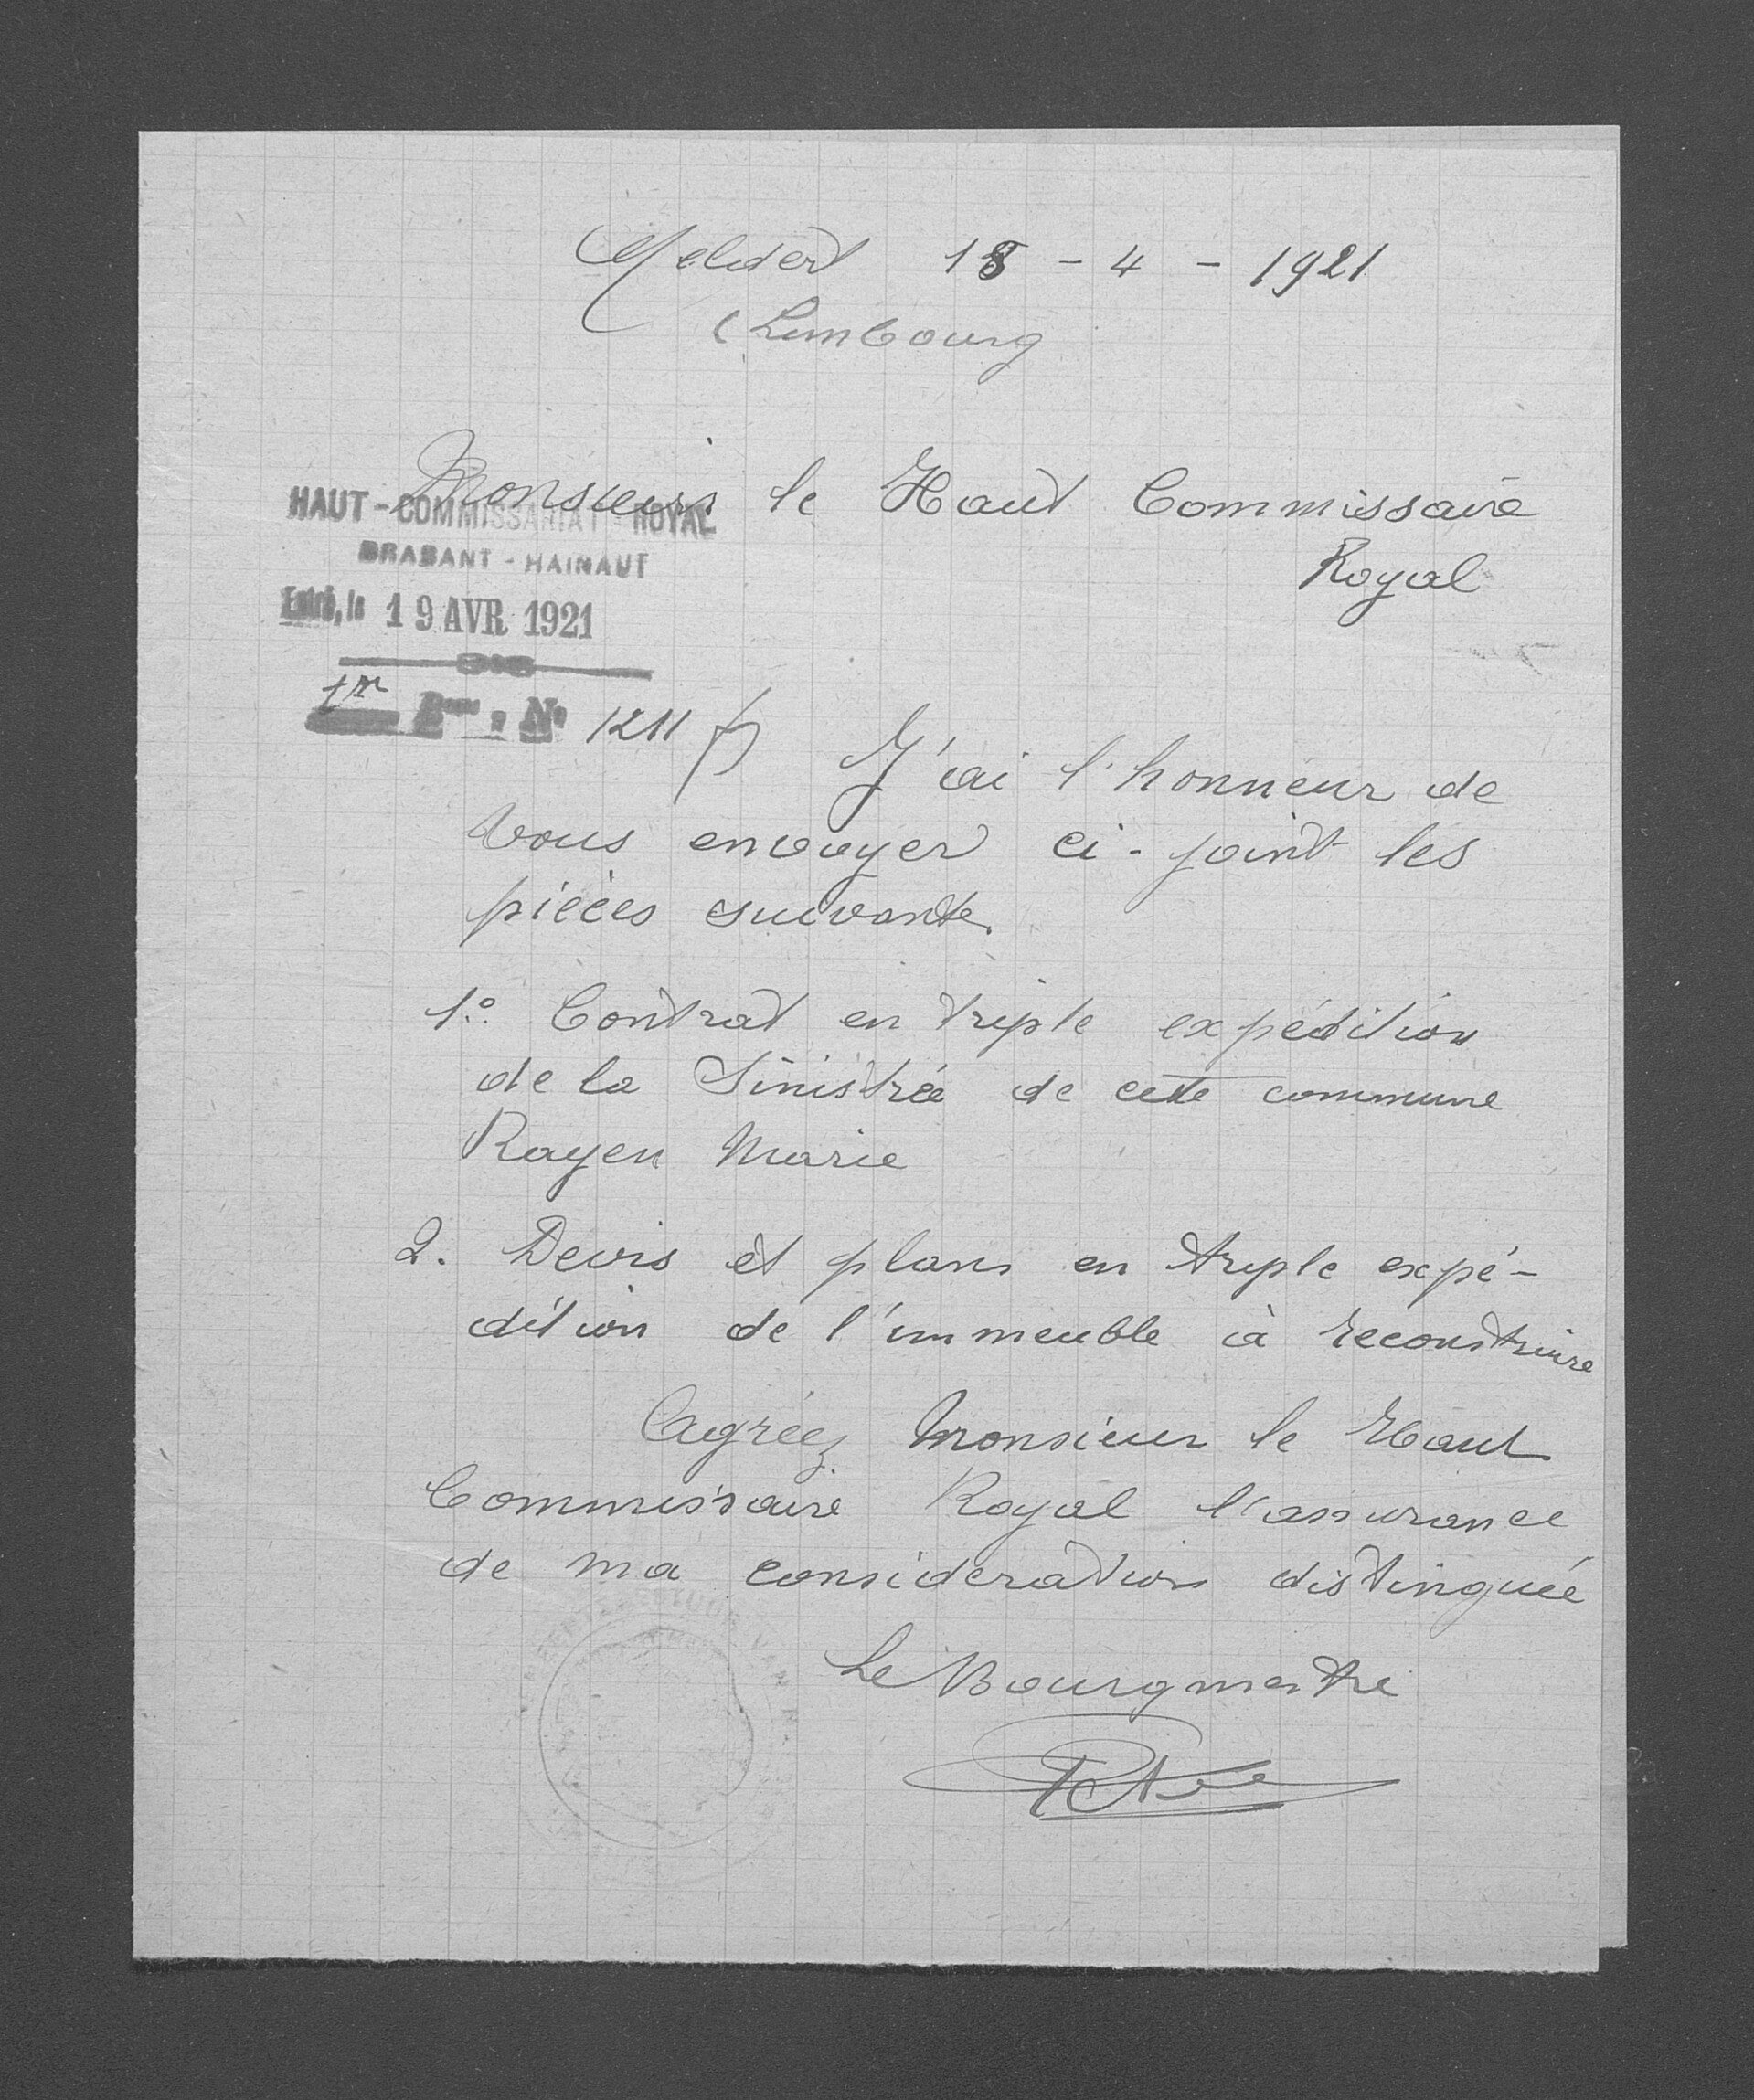 Meldert 18 - 4 - 1921
(Limbourg
Monsieur le Haut Commissaire
Royal
HAUT-COMMISSARIAT ROYAL
BRABANT - HAINAUT
Entré, le 19 AVR 1921
Nº 1211
J'ai l'honneur de
vous envoyer ci-joint les
pièces suivante.
1º. Contrat en triple expédition
de la Sinistrée de cette commune
Rayen Marie
2. Devis et plans en triple expé-
dition de l'immeuble à reconstruire
Agréez Monsieur le Haut
Commissaire Royal l'assurance
de ma consideration distinguée
Le Bourgmestre